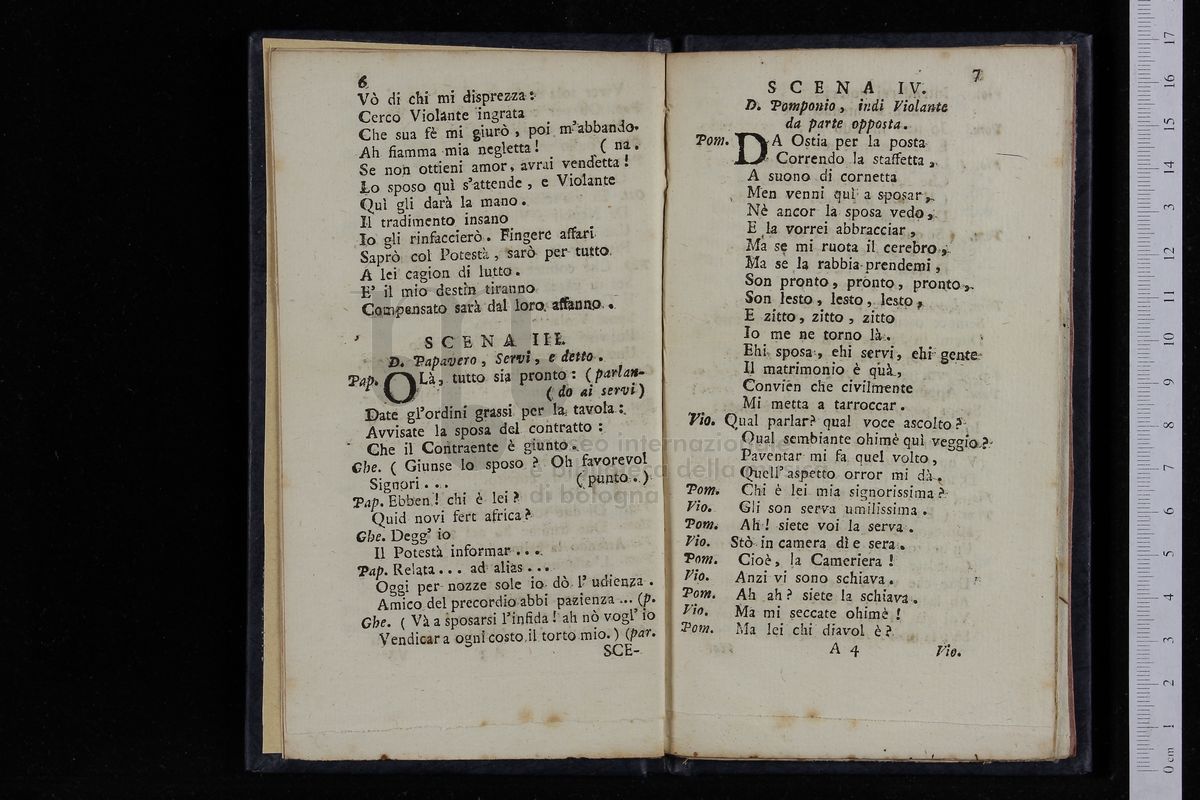 6
Vò di chi mi disprezza:
Cerco Violante ingrata
Che sua fè mi giurò, poi m'abbando-
Ah fiamma mia negletta! ( na.
Se non ottieni amor, avrai vendetta!
Lo sposo quì s'attende, e Violante
Quì gli darà la mano.
Il tradimento insano
Io gli rinfaccierò. Fingere affari
Saprò col Potestà, sarò per tutto
A lei cagion di lutto.
E' il mio destin tiranno
Compensato sarà dal loro affanno.
SCENA III.
D. Papavero, Servi, e detto.
Pap. OLà, tutto sia pronto: (parlan-
( do ai servi)
Date gl'ordini grassi per la tavola:
Avvisate la sposa del contratto:
Che il Contraente è giunto.
Ghe. ( Giunse lo sposo? Oh favorevol
Signori... ( punto.)
Pap. Ebben! chi è lei?
Quid novi fert africa?
Ghe. Degg' io
Il Potestà informar...
Pap. Relata... ad alias...
Oggi per nozze sole io dò l' udienza.
Amico del precordio abbi pazienza... (p.
Ghe. ( Và a sposarsi l'infida! ah nò vogl' io
Vendicar a ogni costo il torto mio.) (par.
SCE-
7
SCENA IV.
D. Pomponio, indi Violante
da parte opposta.
Pom. DA Ostia per la posta
Correndo la staffetta,
A suono di cornetta
Men venni quì a sposar,
Nè ancor la sposa vedo,
E la vorrei abbracciar,
Ma se mi ruota il cerebro,
Ma se la rabbia prendemi,
Son pronto, pronto, pronto,
Son lesto, lesto, lesto,
E zitto, zitto, zitto
Io me ne torno là.
Ehi sposa, ehi servi, ehi gente
Il matrimonio è quà,
Convien che civilmente
Mi metta a tarroccar.
Vio. Qual parlar? qual voce ascolto?
Qual sembiante ohimè quì veggio?
Paventar mi fa quel volto,
Quell' aspetto orror mi dà.
Pom. Chi è lei mia signorissima?
Vio. Gli son serva umilissima.
Pom. Ah! siete voi la serva.
Vio. Stò in camera dì e sera.
Pom. Cioè, la Cameriera!
Vio. Anzi vi sono schiava.
Pom. Ah ah? siete la schiava.
Vio. Ma mi seccate ohimè!
Pom. Ma lei chi diavol è?
A 4 Vio.
museo internazionale
e biblioteca della musica
di bologna
0 cm 1 2 3 4 5 6 7 8 9 10 11 12 3 14 15 16 17